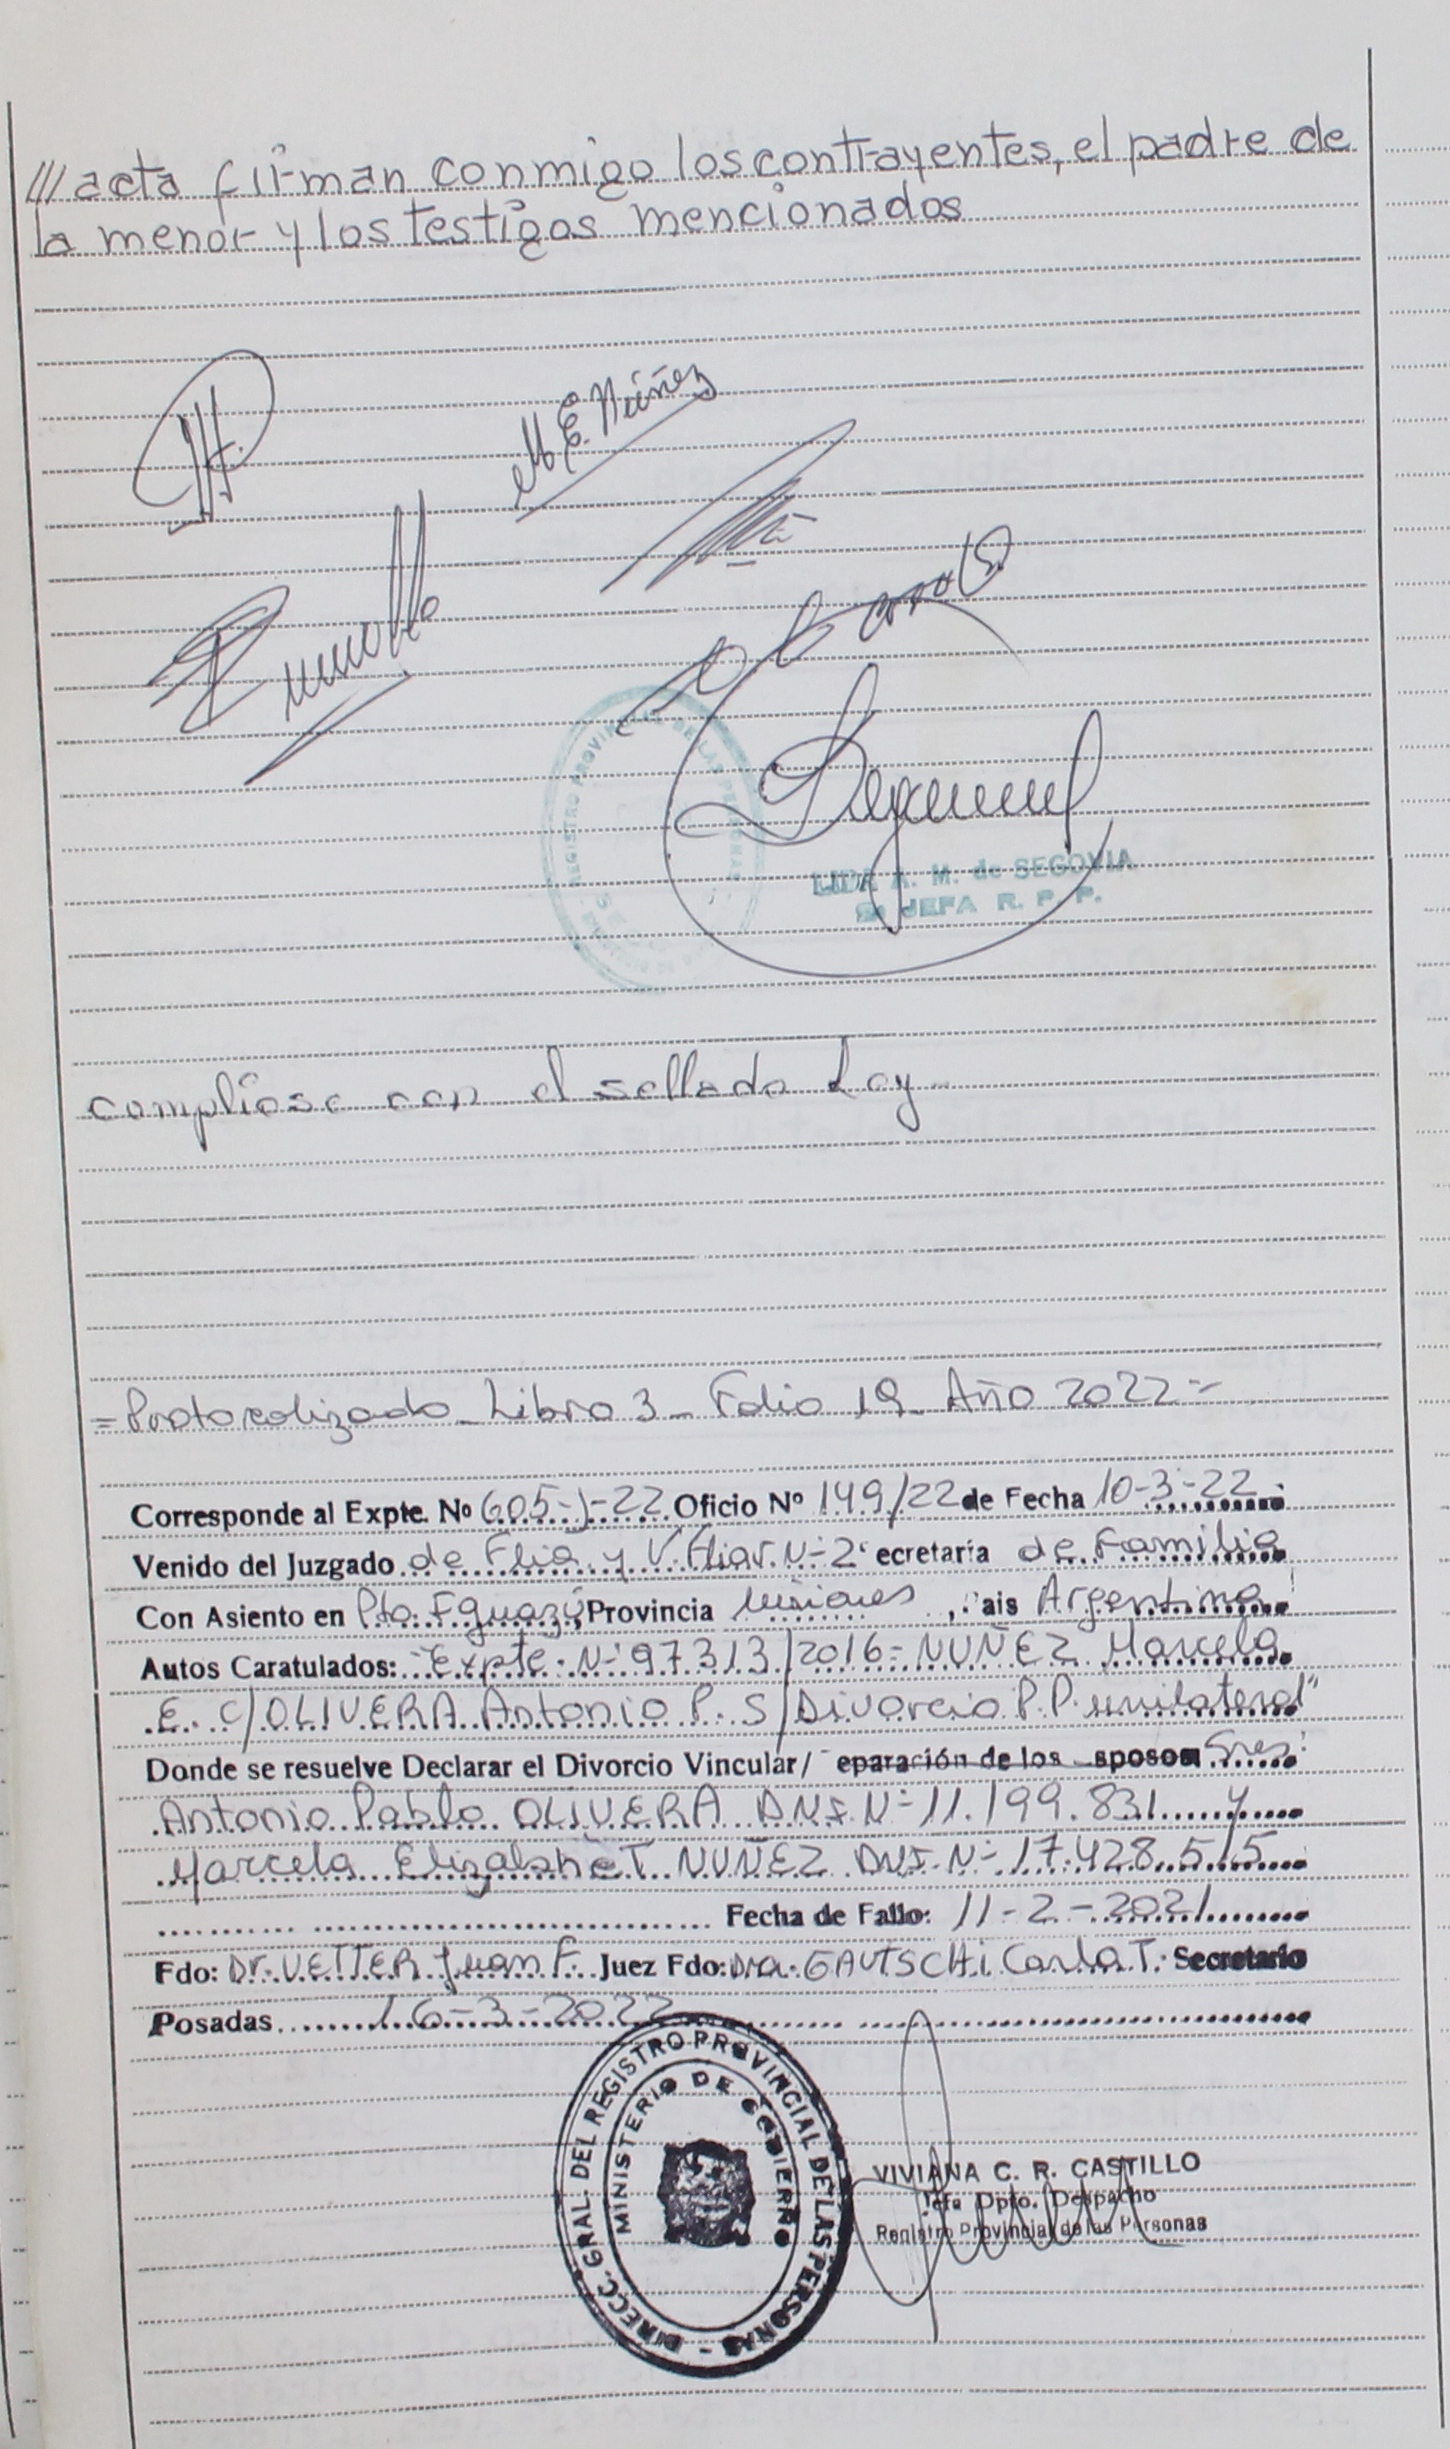 /// acta firman conmigo los contrayentes, el padre de
la menor y los testigos mencionados
M E. Núñez
REGISTRO PROVINCIAL DE LAS PERSONAS
LIDA A. M. de SEGOVIA
JEFA R. P. P.
compliose con el sellado Ley
=Protocolizado - Libro 3 - Folio 19 - Año 2022=
Corresponde al Expte. Nº 605-J-22 Oficio Nº 149/22 de Fecha 10-3-22
Venido del Juzgado de Flia y V. Fliar. Nº 2 ecretaría de Familia
Con Asiento en Pto. Iguazú, Provincia Misiones, ais Argentina
Autos Caratulados: "Expte. Nº 97313/2016 - NUÑEZ Marcela
E. C/OLIVERA Antonio P. S/Divorcio P.P. unilateral"
Donde se resuelve Declarar el Divorcio Vincular/ eparación de los sposos Sres.
Antonio Pablo OLIVERA D.N.I. Nº 11.199.831 y
Marcela Elizabhet NUÑEZ DNI. Nº 17.428.515
Fecha de Fallo: 11-2-2021
Fdo: Dr. VETTER Juan F. Juez Fdo: Dra. GAUTSCHi Carla T. Secretario
Posadas 16-3-2022
DIRECC. GRAL. DEL REGISTRO PROVINCIAL DE LAS PERSONAS -
MINISTERIO DE GOBIERNO
VIVIANA C. R. CASTILLO
Jefa Dpto. Despacho
Registro Provincial de las Personas